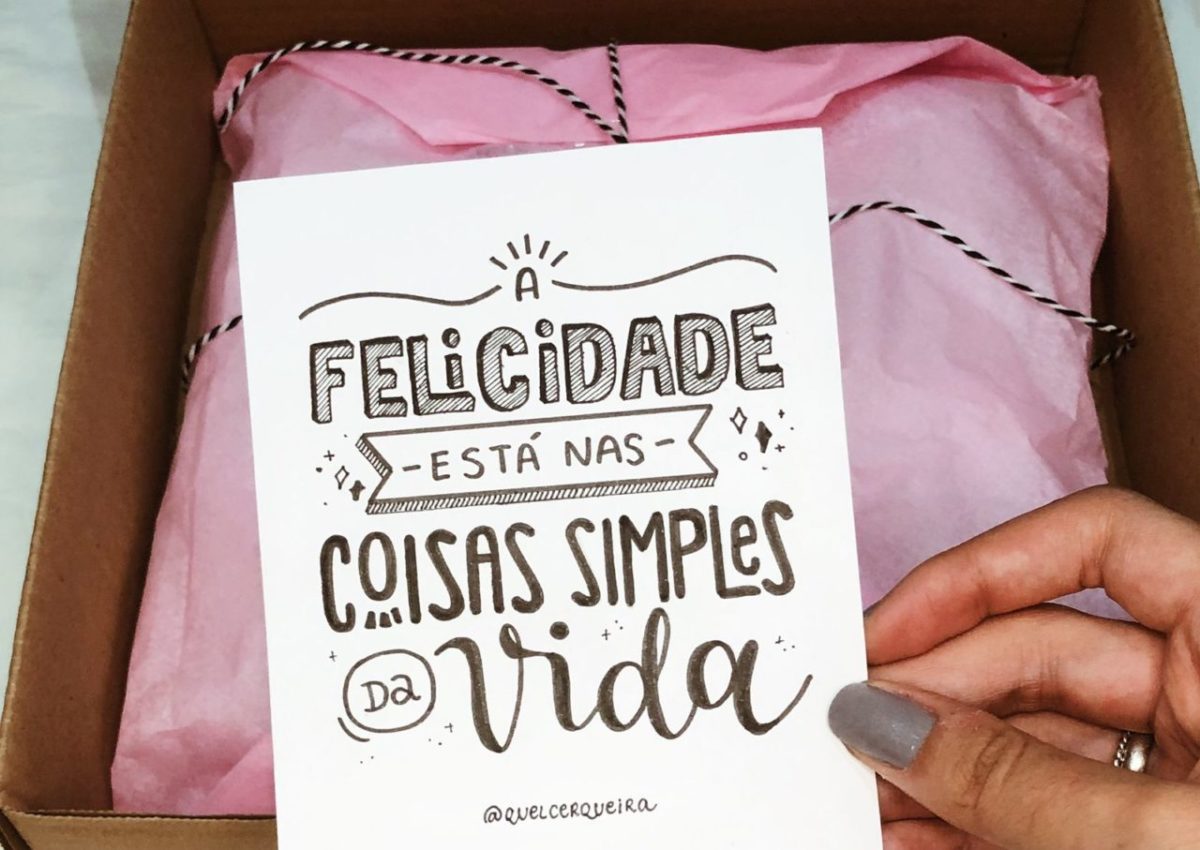 A
FELiCiDADE
- ESTÁ NAS -
COISAS SIMPLeS
Da vida
@quelcerqueira